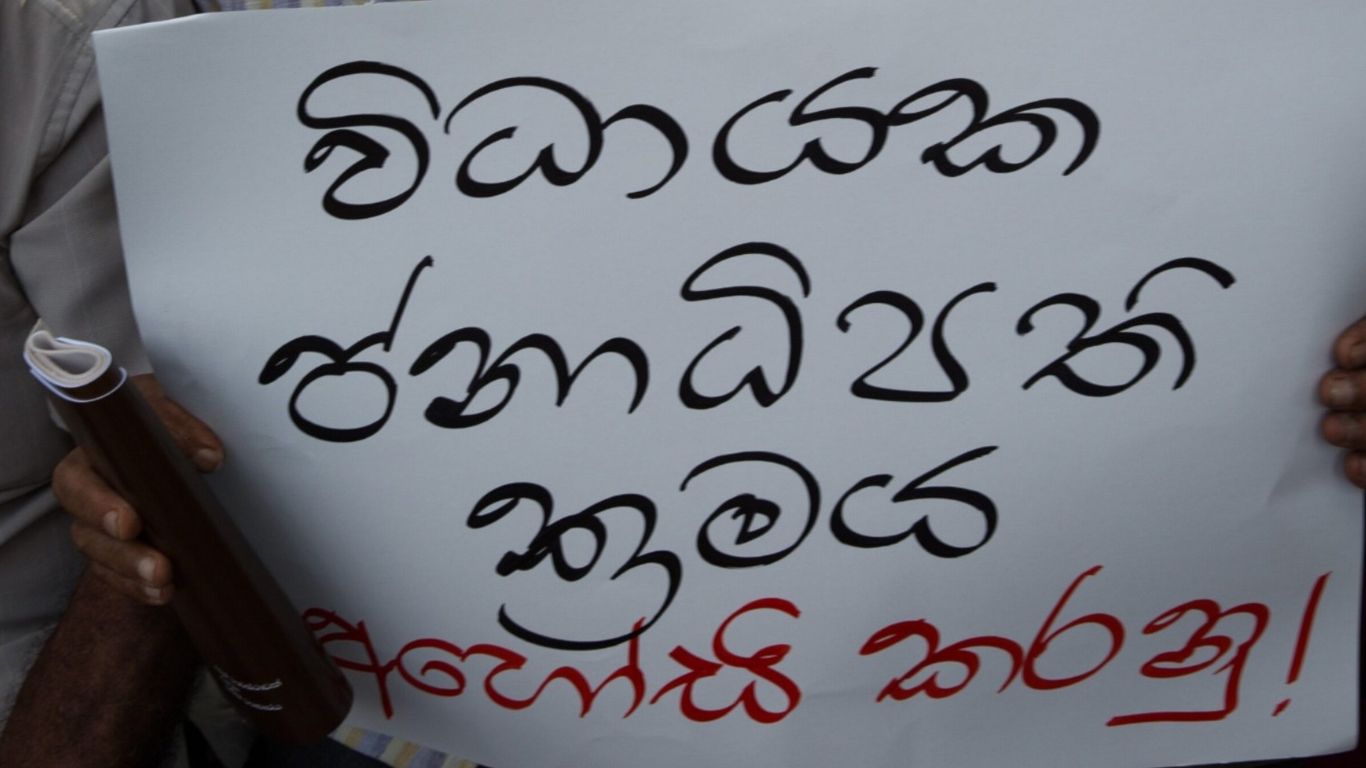 විධායක
ජනාධිපති
ක්‍රමය
අහෝසි කරනු!